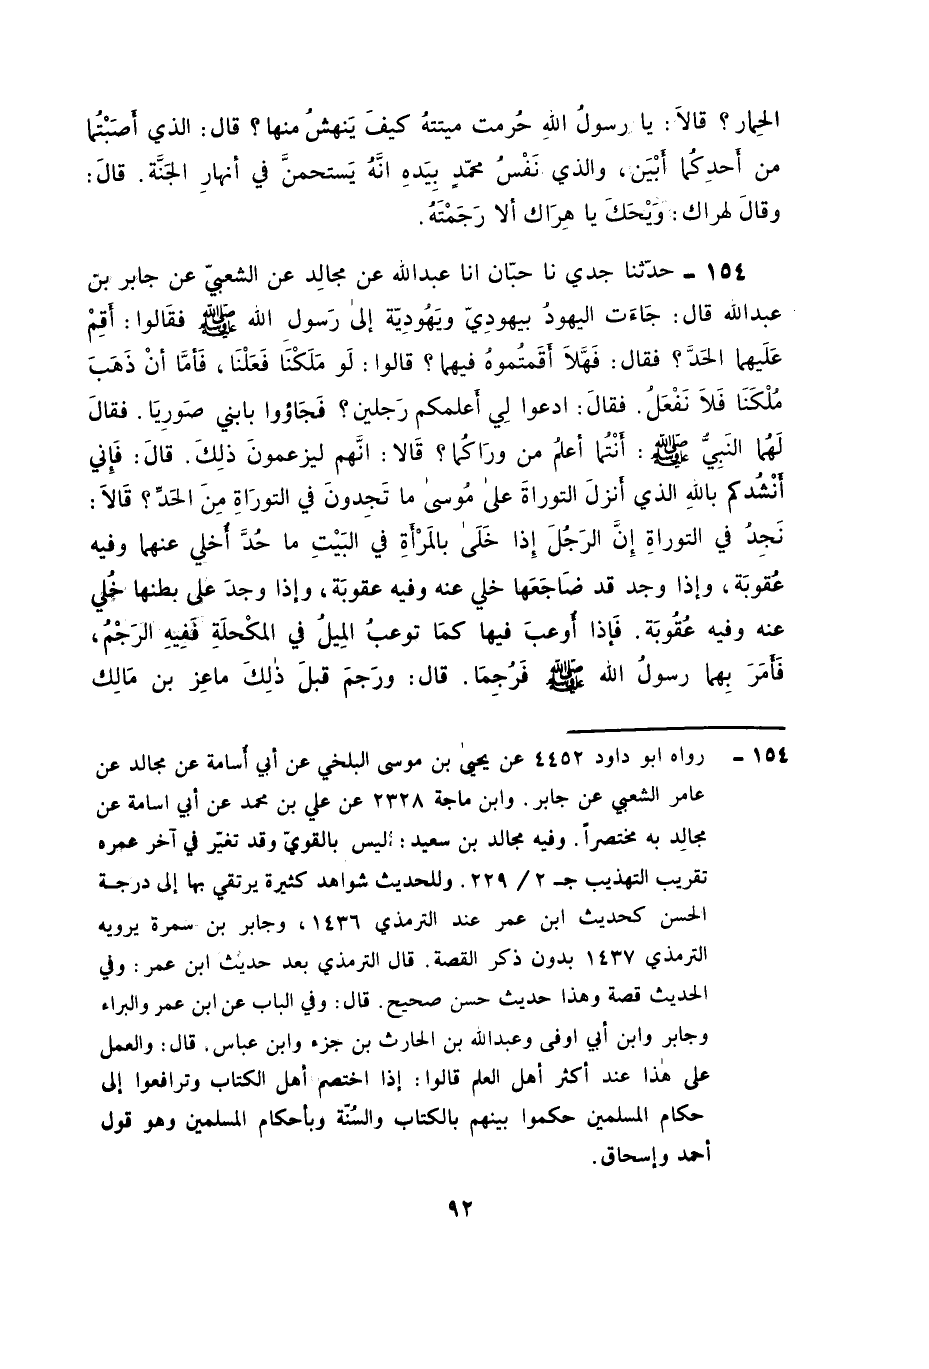 الحِمار؟ قالاَ: يا رسولُ اللهِ حُرمت ميتتهُ كيفَ يَنهشُ منها؟ قال: الذي أَصَبْتُما
من أَحدِكُما أَبْيَن، والذي نَفْسُ محمّدٍ بِيَدهِ انَّهُ يَستحمنَّ في أنهارِ الجَنَّة. قالَ:
وقالَ لهراك: وَيْحَكَ يا هِرَاك ألا رَجَمْتَهُ.
١٥٤ ـ حدّثنا جدي نا حبّان انا عبدالله عن مجالِد عن الشعبيّ عن جابر بن
عبدالله قال: جَاءَت اليهودُ بيهوديّ ويَهُوديّة إلىٰ رَسولِ الله ﷺ فقَالوا: أَقِمْ
عَلَيهما الحَدَّ؟ فقال: فَهَّلاَ أَقَمتُموهُ فيهما؟ قالوا: لَو مَلَكْنَا فَعَلْنَا، فَأمَّا أنْ ذَهَبَ
مُلْكَنَا فَلاَ نَفْعَلُ. فقالَ: ادعوا لِي أَعلمكم رَجلين؟ فَجَاؤوا بابني صَورِيَا. فقالَ
لَهُما النَبِيُّ ﷺ: أَنْتُما أعلمُ من ورَاكُما؟ قَالا: انَّهم ليزعمونَ ذلِكَ. قالَ: فَإِني
أَنْشُدكم باللهِ الذي أَنزلَ التوراةَ علىٰ مُوسىٰ ما تَجدونَ في التورَاةِ مِنَ الحَدِّ؟ قَالاَ:
نَجِدُ في التوراةِ إِنَّ الرَجُلَ إِذا خَلَىٰ بالمَرْأَةِ في البَيْتِ ما حُدَّ أُخلي عنهما وفيه
عُقوبَة، وإذا وجد قد ضَاجَعَها خلي عنه وفيه عقوبَة، وإذا وجدَ على بطنها خُلي
عنه وفيه عُقُوبَة. فَإذا أُوعبَ فيها كمَا توعبُ المِيلُ في المكْحلَةِ فَفِيهِ الرَجْمُ،
فَأَمَرَ بِهما رسولُ الله ﷺ فَرُجِمَا. قال: ورَجمَ قبلَ ذٰلِكَ ماعِز بن مَالِك
١٥٤ ـ رواه ابو داود ٤٤٥٢ عن يحيىٰ بن موسى البلخي عن أبي أسامة عن مجالد عن
عامر الشعبي عن جابر. وابن ماجة ٢٣٢٨ عن علي بن محمد عن أبي اسامة عن
مجالِد به مختصراً. وفيه مجالد بن سعيد: ليس بالقويّ وقد تغيّر في آخر عمره
تقريب التهذيب جـ ٢/ ٢٢٩. وللحديث شواهد كثيرة يرتقي بها إلى درجة
الحسن كحديث ابن عمر عند الترمذي ١٤٣٦، وجابر بن سمرة يرويه
الترمذي ١٤٣٧ بدون ذكر القصة. قال الترمذي بعد حديث ابن عمر: وفي
الحديث قصة وهذا حديث حسن صحيح. قال: وفي الباب عن ابن عمر والبراء
وجابر وابن أبي اوفى وعبدالله بن الحارث بن جزء وابن عباس. قال: والعمل
على هٰذا عند أكثر أهل العلم قالوا: إذا اختصم أهل الكتاب وترافعوا إلى
حكام المسلمين حكموا بينهم بالكتاب والسُنّة وبأحكام المسلمين وهو قول
أحمد وإسحاق.
٩٢